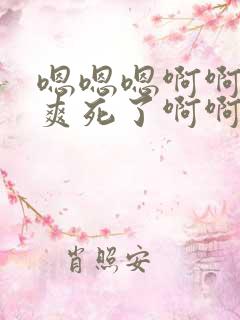 嗯嗯嗯啊啊
爽死了啊啊
肖照安